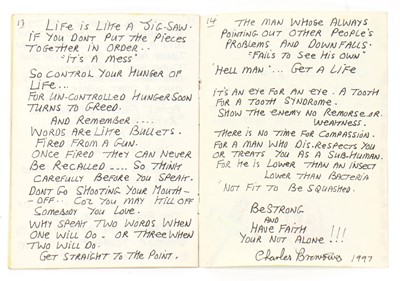 13
LIFE IS LIKE A JIG-SAW.
IF YOU DONT PUT THE PIECES
TOGETHER IN ORDER..
"IT'S A MESS"
SO CONTROL YOUR HUNGER OF
LIFE...
FOR UN-CONTROLLED HUNGER SOON
TURNS TO GREED.
AND REMEMBER....
WORDS ARE LIKE BULLETS.
FIRED FROM A GUN.
ONCE FIRED THEY CAN NEVER
BE RECALLED ---- SO THINK
CAREFULLY BEFORE YOU SPEAK.
DONT GO SHOOTING YOUR MOUTH-
-OFF.. COZ YOU MAY KILL OFF
SOMEBODY YOU LOVE.
WHY SPEAK TWO WORDS WHEN
ONE WILL DO. - OR THREE WHEN
TWO WILL DO.
GET STRAIGHT TO THE POINT.
14
THE MAN WHOSE ALWAYS
POINTING OUT OTHER PEOPLE'S
PROBLEMS AND DOWNFALLS.
"FAILS TO SEE HIS OWN"
"HELL MAN"... GET A LIFE
IT'S AN EYE FOR AN EYE. A TOOTH
FOR A TOOTH SYNDROME.
SHOW THE ENEMY NO REMORSE.OR.
WEAKNESS.
THERE IS NO TIME FOR COMPASSION.
FOR A MAN WHO DIS.RESPECTS YOU
OR TREATS YOU AS A SUB-HUMAN.
FOR HE IS LOWER THAN AN INSECT
LOWER THAN BACTERIA
NOT FIT TO BE SQUASHED.
BE STRONG
AND
HAVE FAITH
YOUR NOT ALONE !!!
Charles Bronson 1997